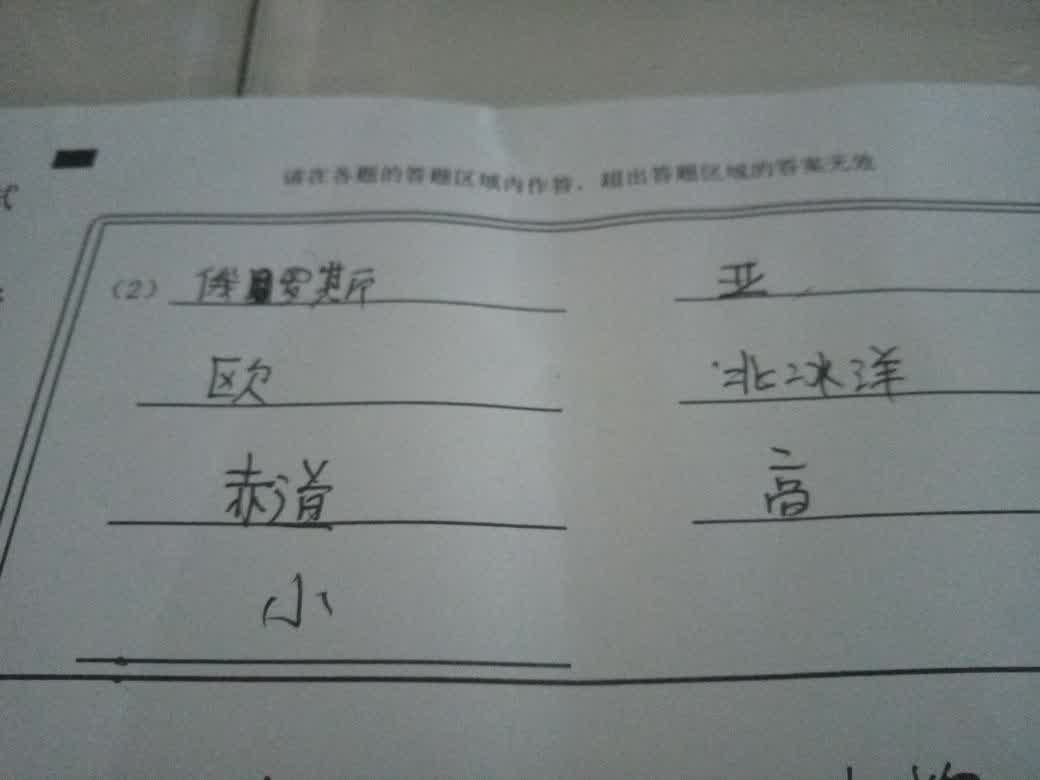 请在各题的答题区域内作答，超出答题区域的答案无效
(2) 俄罗斯 亚
欧 北冰洋
赤道 高
小